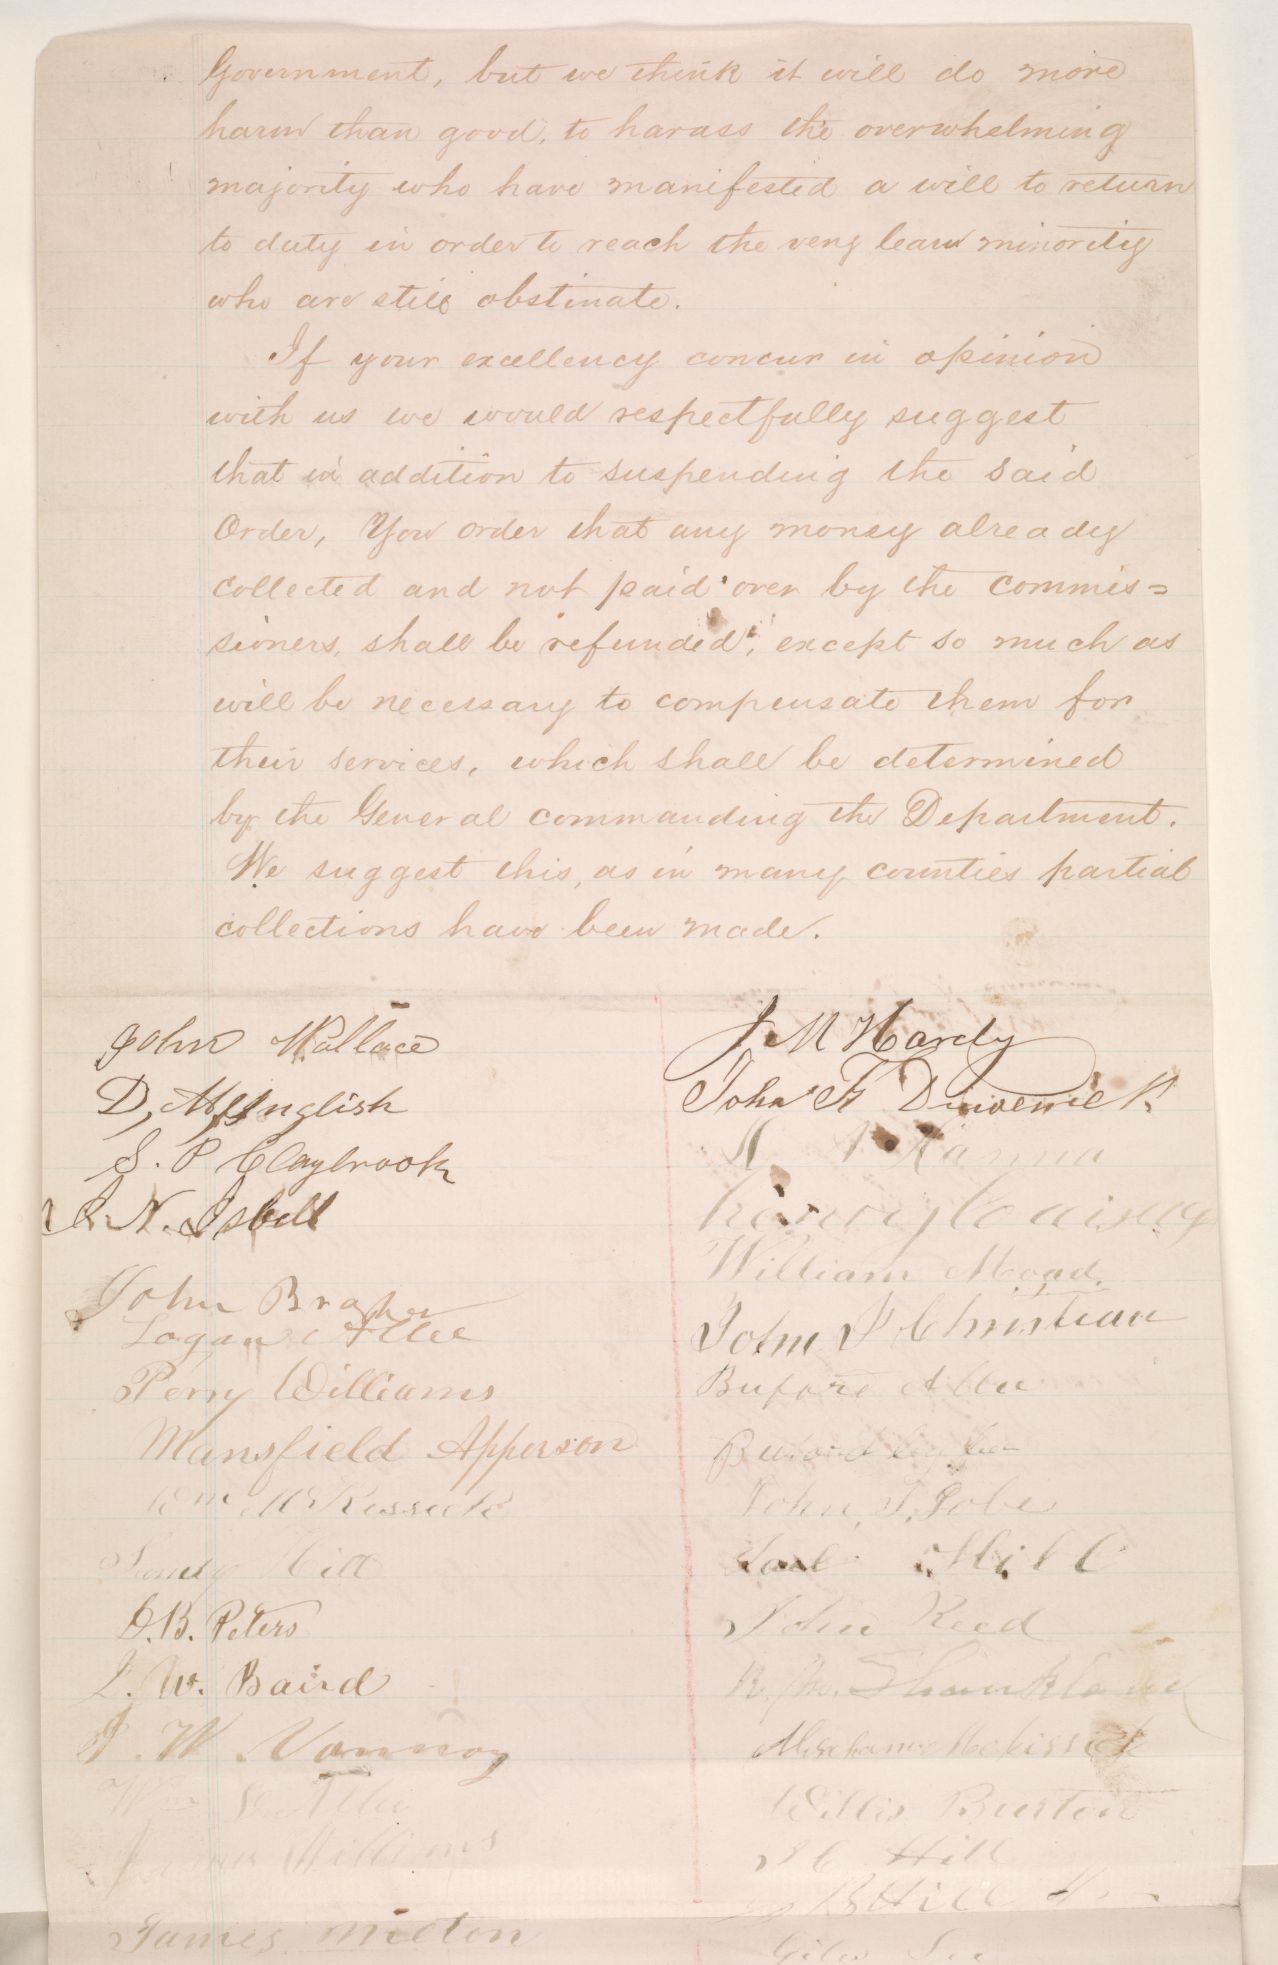 Government, but we think it will do more
harm than good, to harass the overwhelming
majority who have manifested a will to return
to duty in order to reach the very lean minority
who are still obstinate.
If your excellency concur in opinion
with us we would respectfully suggest
that in addition to suspending the said
Order, You order that any money already
collected and not paid over by the commis=
sioners, shall be refunded, except so much as
will be necessary to compensate them for
their services, which shall be determined
by the General commanding the Department.
We suggest this, as in many counties partial
collections have been made.
John Wallace
D, M, English
S. P Claybrook
J. N. Isbell
John
Logan Allee
Perry Williams
Mansfield Apperson
Wm McKissick
Hill
D. B. Peters
J. W. Baird
J. W Vannoy
Wm Allee
James Williams
James Melton
J M Hardy
John F
Hanna
William Moad.
John F Christian
Buford Allee
John T. Jobe
Hill
John Reed
R. M. Shankland
McKissick
Willis Burton
Hill
B Hill
Giles